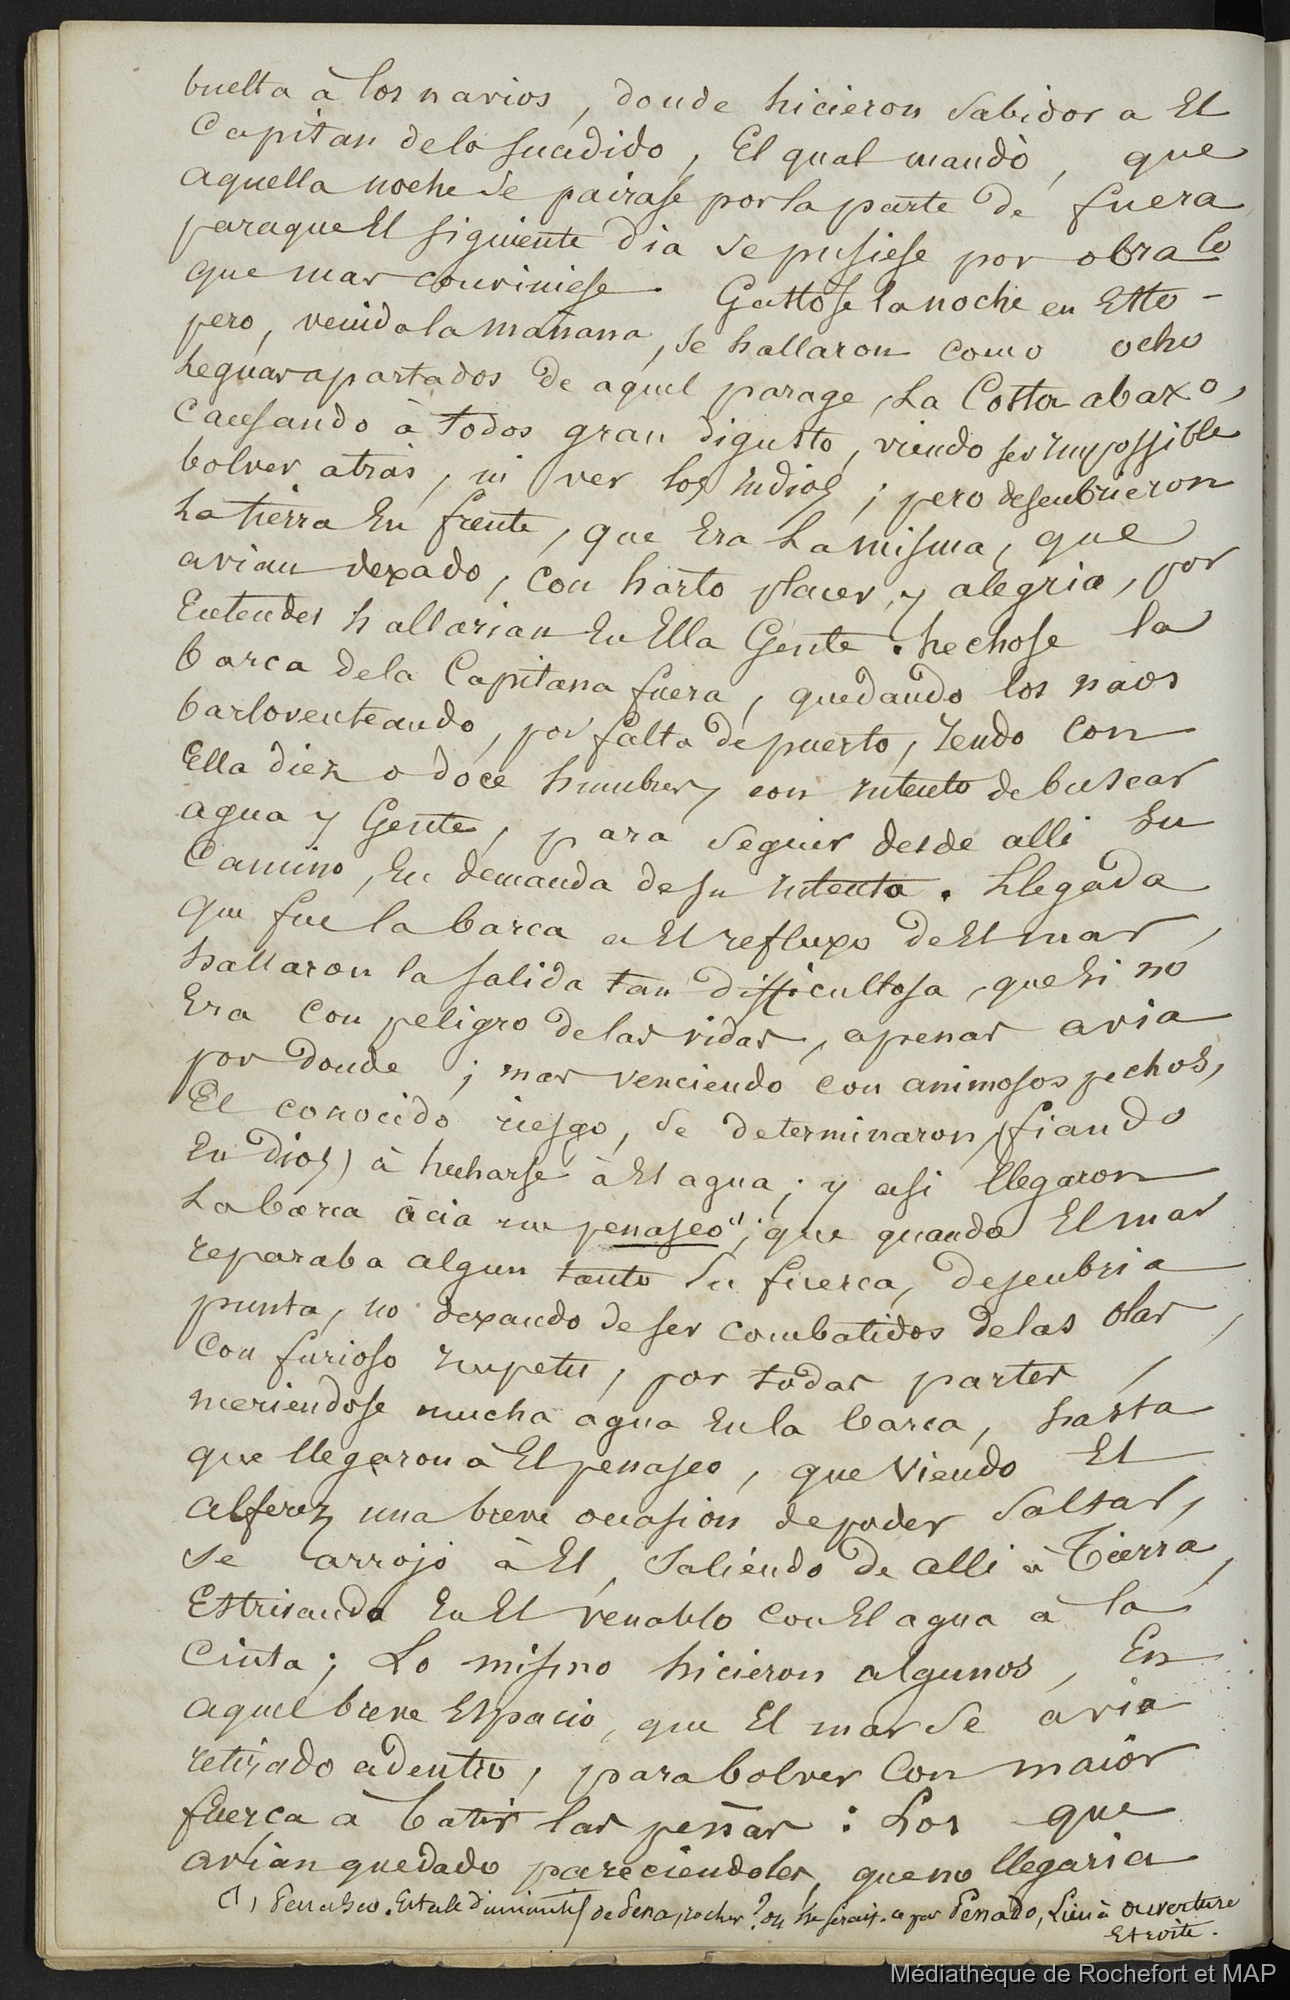 buelta à los navios, donde hicieron sabidor a El
Capitan delo sucedido, El qual mandò, que
aquella noche se pairase por la parte de fuera
paraque El siguiente dia se pusiese por obra lo
que mas conviniese. Gastose la noche en Esto -
pero, venida la mañana, se hallaron como ocho
Leguas apartados de aquel parage, La Costa abaxo,
Causando à todos gran digusto, viendo ser Impossible
bolver atrás, ni ver los Indios; pero descubrieron
La tierra En frente, que Era La misma, que
avian dexado, con harto placer, y alegria, por
Entender hallarian En Ella Gente. hechose la
barca dela Capitana fuera, quedando los naos
barloventeando, por falta de puerto, Yendo con
Ella diez o doce hombres, con Intento de buscar
agua y Gente, para seguir desde alli su
Camino, En demanda de su Intento. Llegada
que fue la barca a El refluxo de El mar,
hallaron la salida tan difficultosa, que si no
Era con peligro de las vidas, apenas avia
por donde; mas venciendo con animosos pechos,
El conocido riesgo, se determinaron (fiando
En Dios) à hecharse à El agua; y asi llegaron
La barca àcia un penasco"; que quando El mar
reparaba algun tanto su fuerca, descubria
punta, no dexando de ser combatidos de las olas,
Con furioso Impetu, por todas partes,
metiendose mucha agua En la barca, hasta
que llegaron à El penasco, que Viendo El
Alferez una breve ocasion de poder saltar,
se arrojó à El, saliendo de alli a Tierra,
Estrivando En El venablo con El agua a la
Cinta; Lo mismo hicieron algunos, En
aquel breve Espacio, que El mar se avia
retirado adentro, para bolver Con maior
fuerca à batir las peñas: Los que
avian quedado pareciendoles, que no llegaria
(1) Penasco. Est-ce le diminutif de Pena, rocher? ou ne serait-ce pas Penado, Lieu à ouverture
Etroite.
Médiathèque de Rochefort et MAP